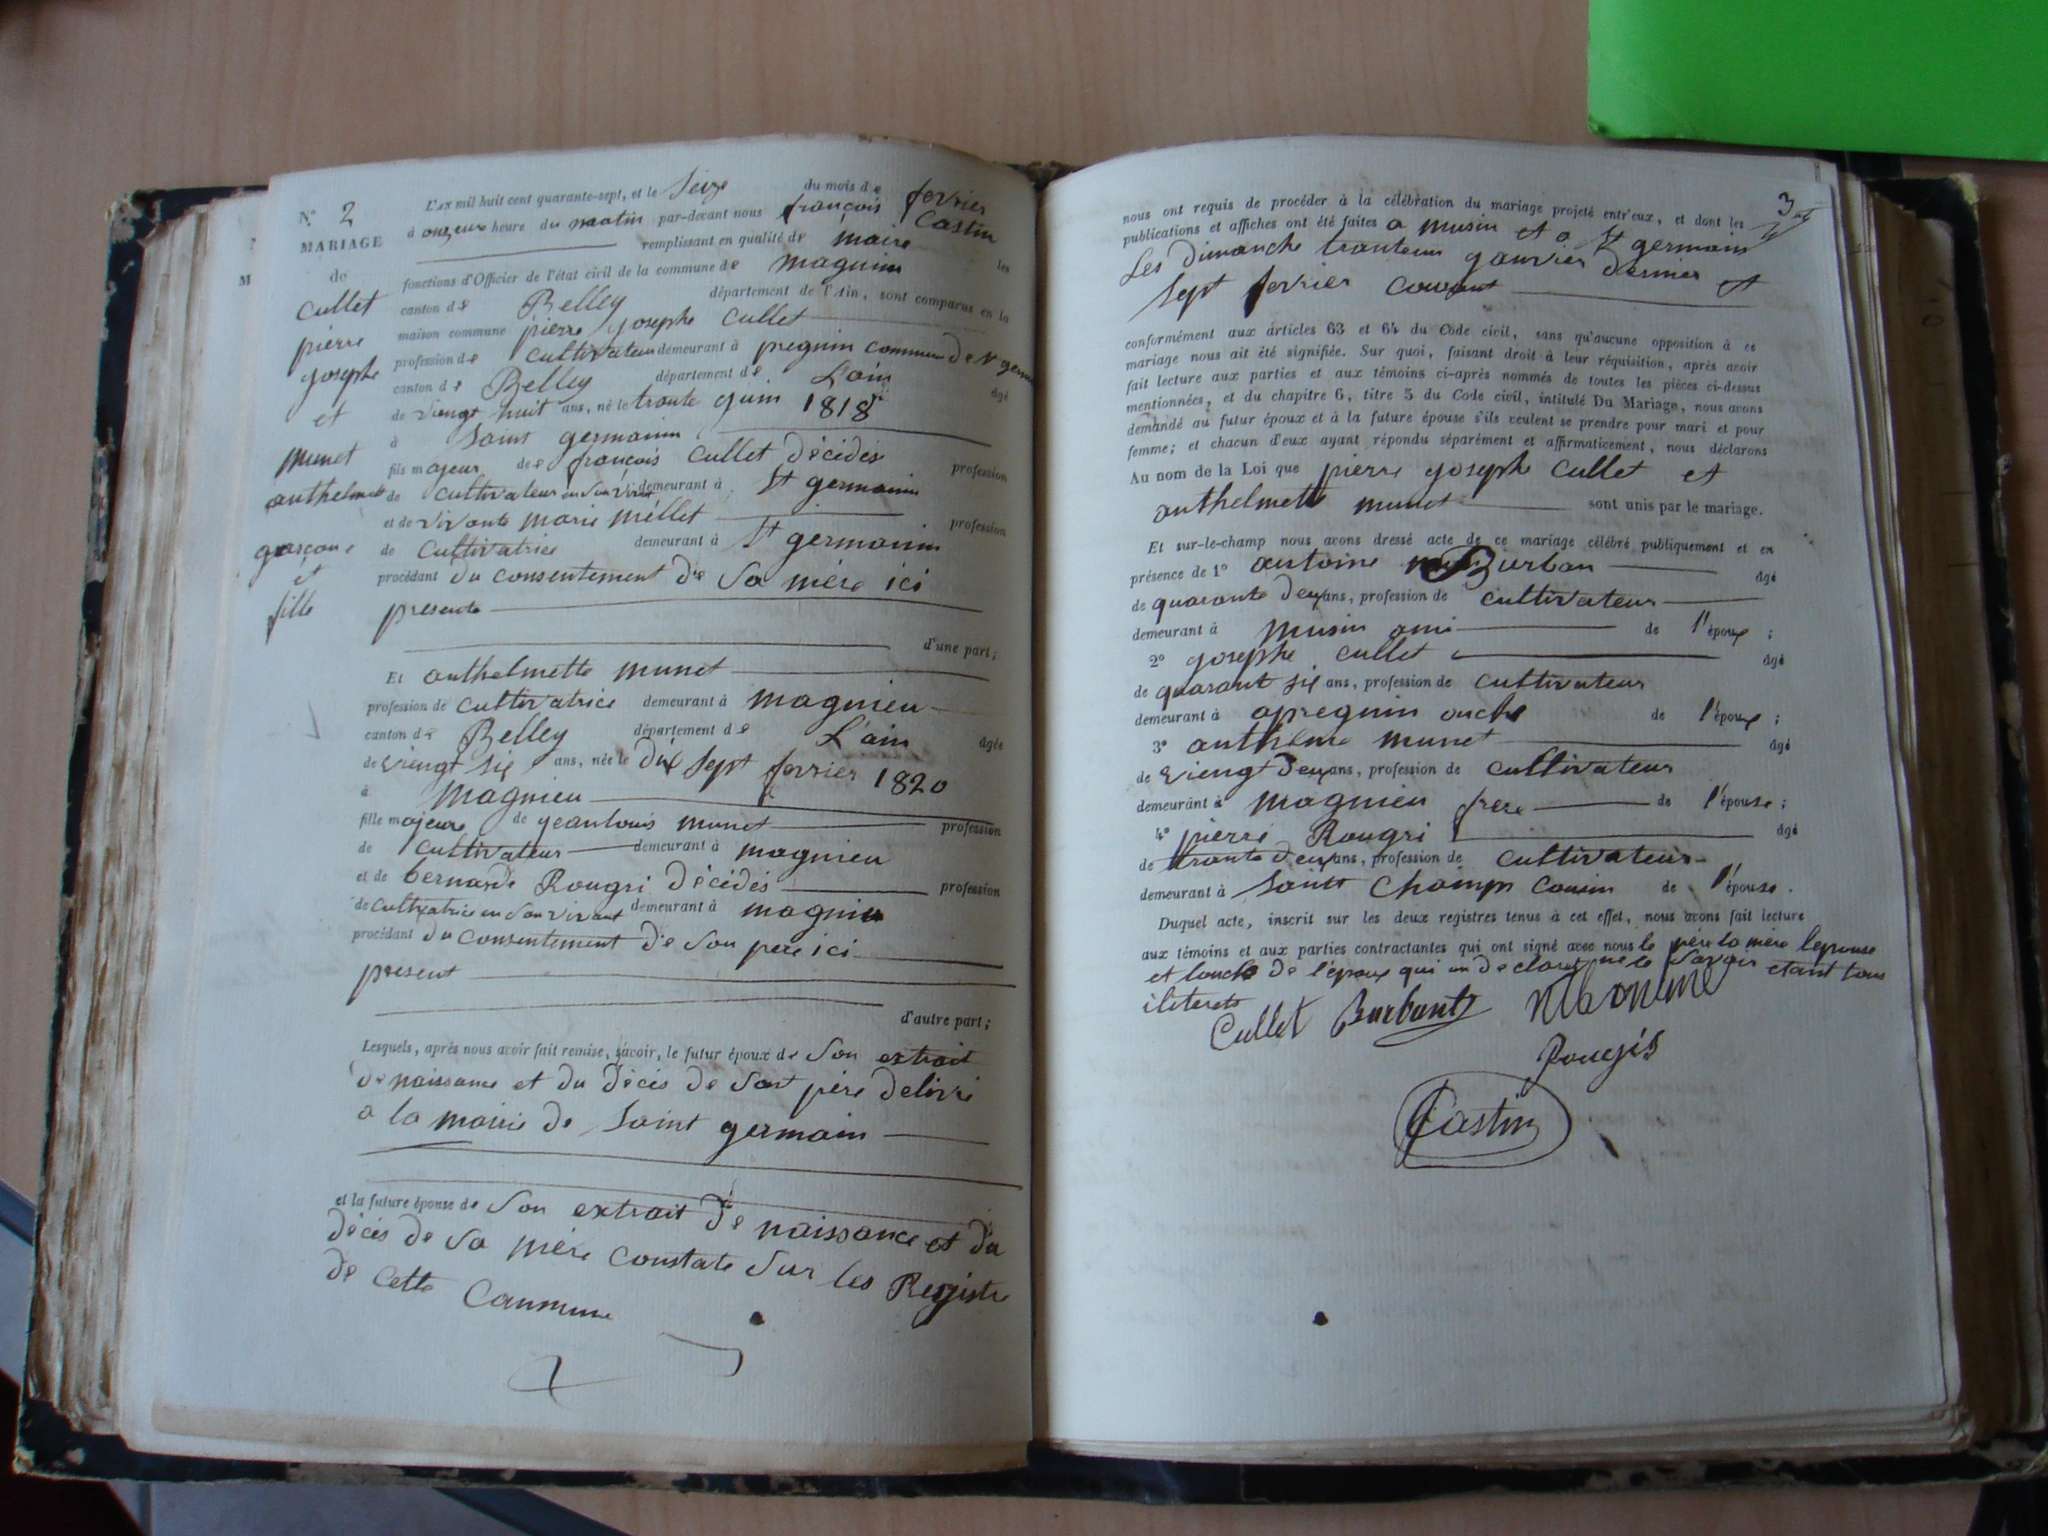 N.° 2
MARIAGE
de
cullet
pierre
yosephe
et
munet
anthelmette
garçon
et
fille
L'AN mil huit cent quarante-sept, et le seize du mois de fevrier
à onzeure heure du matin par-devant nous françois Castin
remplissant en qualité de maire les
fonctions d'Officier de l'état civil de la commune de magnieu
canton de Belley département de l'Ain, sont comparus en la
maison commune pierre yosephe cullet
profession de cultivateur demeurant à pregnin commune de st germain
canton de Belley département de L'ain âgé
de viengt huit ans, né le trante yuin 1818
à saint germain
fils majeur de françois cullet décédés profession
de cultivateur en son vivant demeurant à st germain
et de vivante marie mellet profession
de cultivatrice demeurant à st germain
procédant du consentement de sa mère ici
presente
d'une part;
Et anthelmette munet
profession de cultivatrice demeurant à magnieu
canton de Belley département de L'ain âgée
de viengt six ans, née le dix sept fevrier 1820
à magnieu
fille majeure de yeanlouis munet profession
de cultivateur demeurant à magnieu
et de bernarde Rougri décédés profession
de cultivatrice en son vivant demeurant à magnieu
procédant du consentement de son pere ici
present
d'autre part;
Lesquels, après nous avoir fait remise, savoir, le futur époux de son extrait
de naissance et du décès de son père delivré
a la mairie de saint germain
et la future épouse de son extrait de naissance et du
décés de sa mère constate sur les Registre
de cette Commune
3
nous ont requis de procéder à la célébration du mariage projeté entr'eux, et dont les
publications et affiches ont été faites a musin et a st germain
Les dimanche tranteun yanvier dernier et
sept fevrier courant
conformément aux articles 63 et 64 du Code civil, sans qu'aucune opposition à ce
mariage nous ait été signifiée. Sur quoi, faisant droit à leur réquisition, après avoir
fait lecture aux parties et aux témoins ci-après nommés de toutes les pièces ci-dessus
mentionnées, et du chapitre 6, titre 5 du Code civil, intitulé Du Mariage, nous avons
demandé au futur époux et à la future épouse s'ils veulent se prendre pour mari et pour
femme; et chacun d'eux ayant répondu séparément et affirmativement, nous déclarons
Au nom de la Loi que pierre yosephe cullet et
anthelmette munet sont unis par le mariage.
Et sur-le-champ nous avons dressé acte de ce mariage célébré publiquement et en
présence de 1° antoine Burban âgé
de quarante deux ans, profession de cultivateur
demeurant à musin ami de l'époux;
2° yosephe cullet âgé
de quarant six ans, profession de cultivateur
demeurant à apregnin oncle de l'époux;
3° anthelme munet âgé
de viengt deux ans, profession de cultivateur
demeurant à magnieu frere de l'épouse;
4° pierre Rougri âgé
de trante deux ans, profession de cultivateur
demeurant à saint Champ cousin de l'épouse.
Duquel acte, inscrit sur les deux registres tenus à cet effet, nous avons fait lecture
aux témoins et aux parties contractantes qui ont signé avec nous le père la mère lepouse
et loncle de l'époux qui on declaré ne le savoir etant tous
iliterets
Cullet Burbant
Rougis
Castin